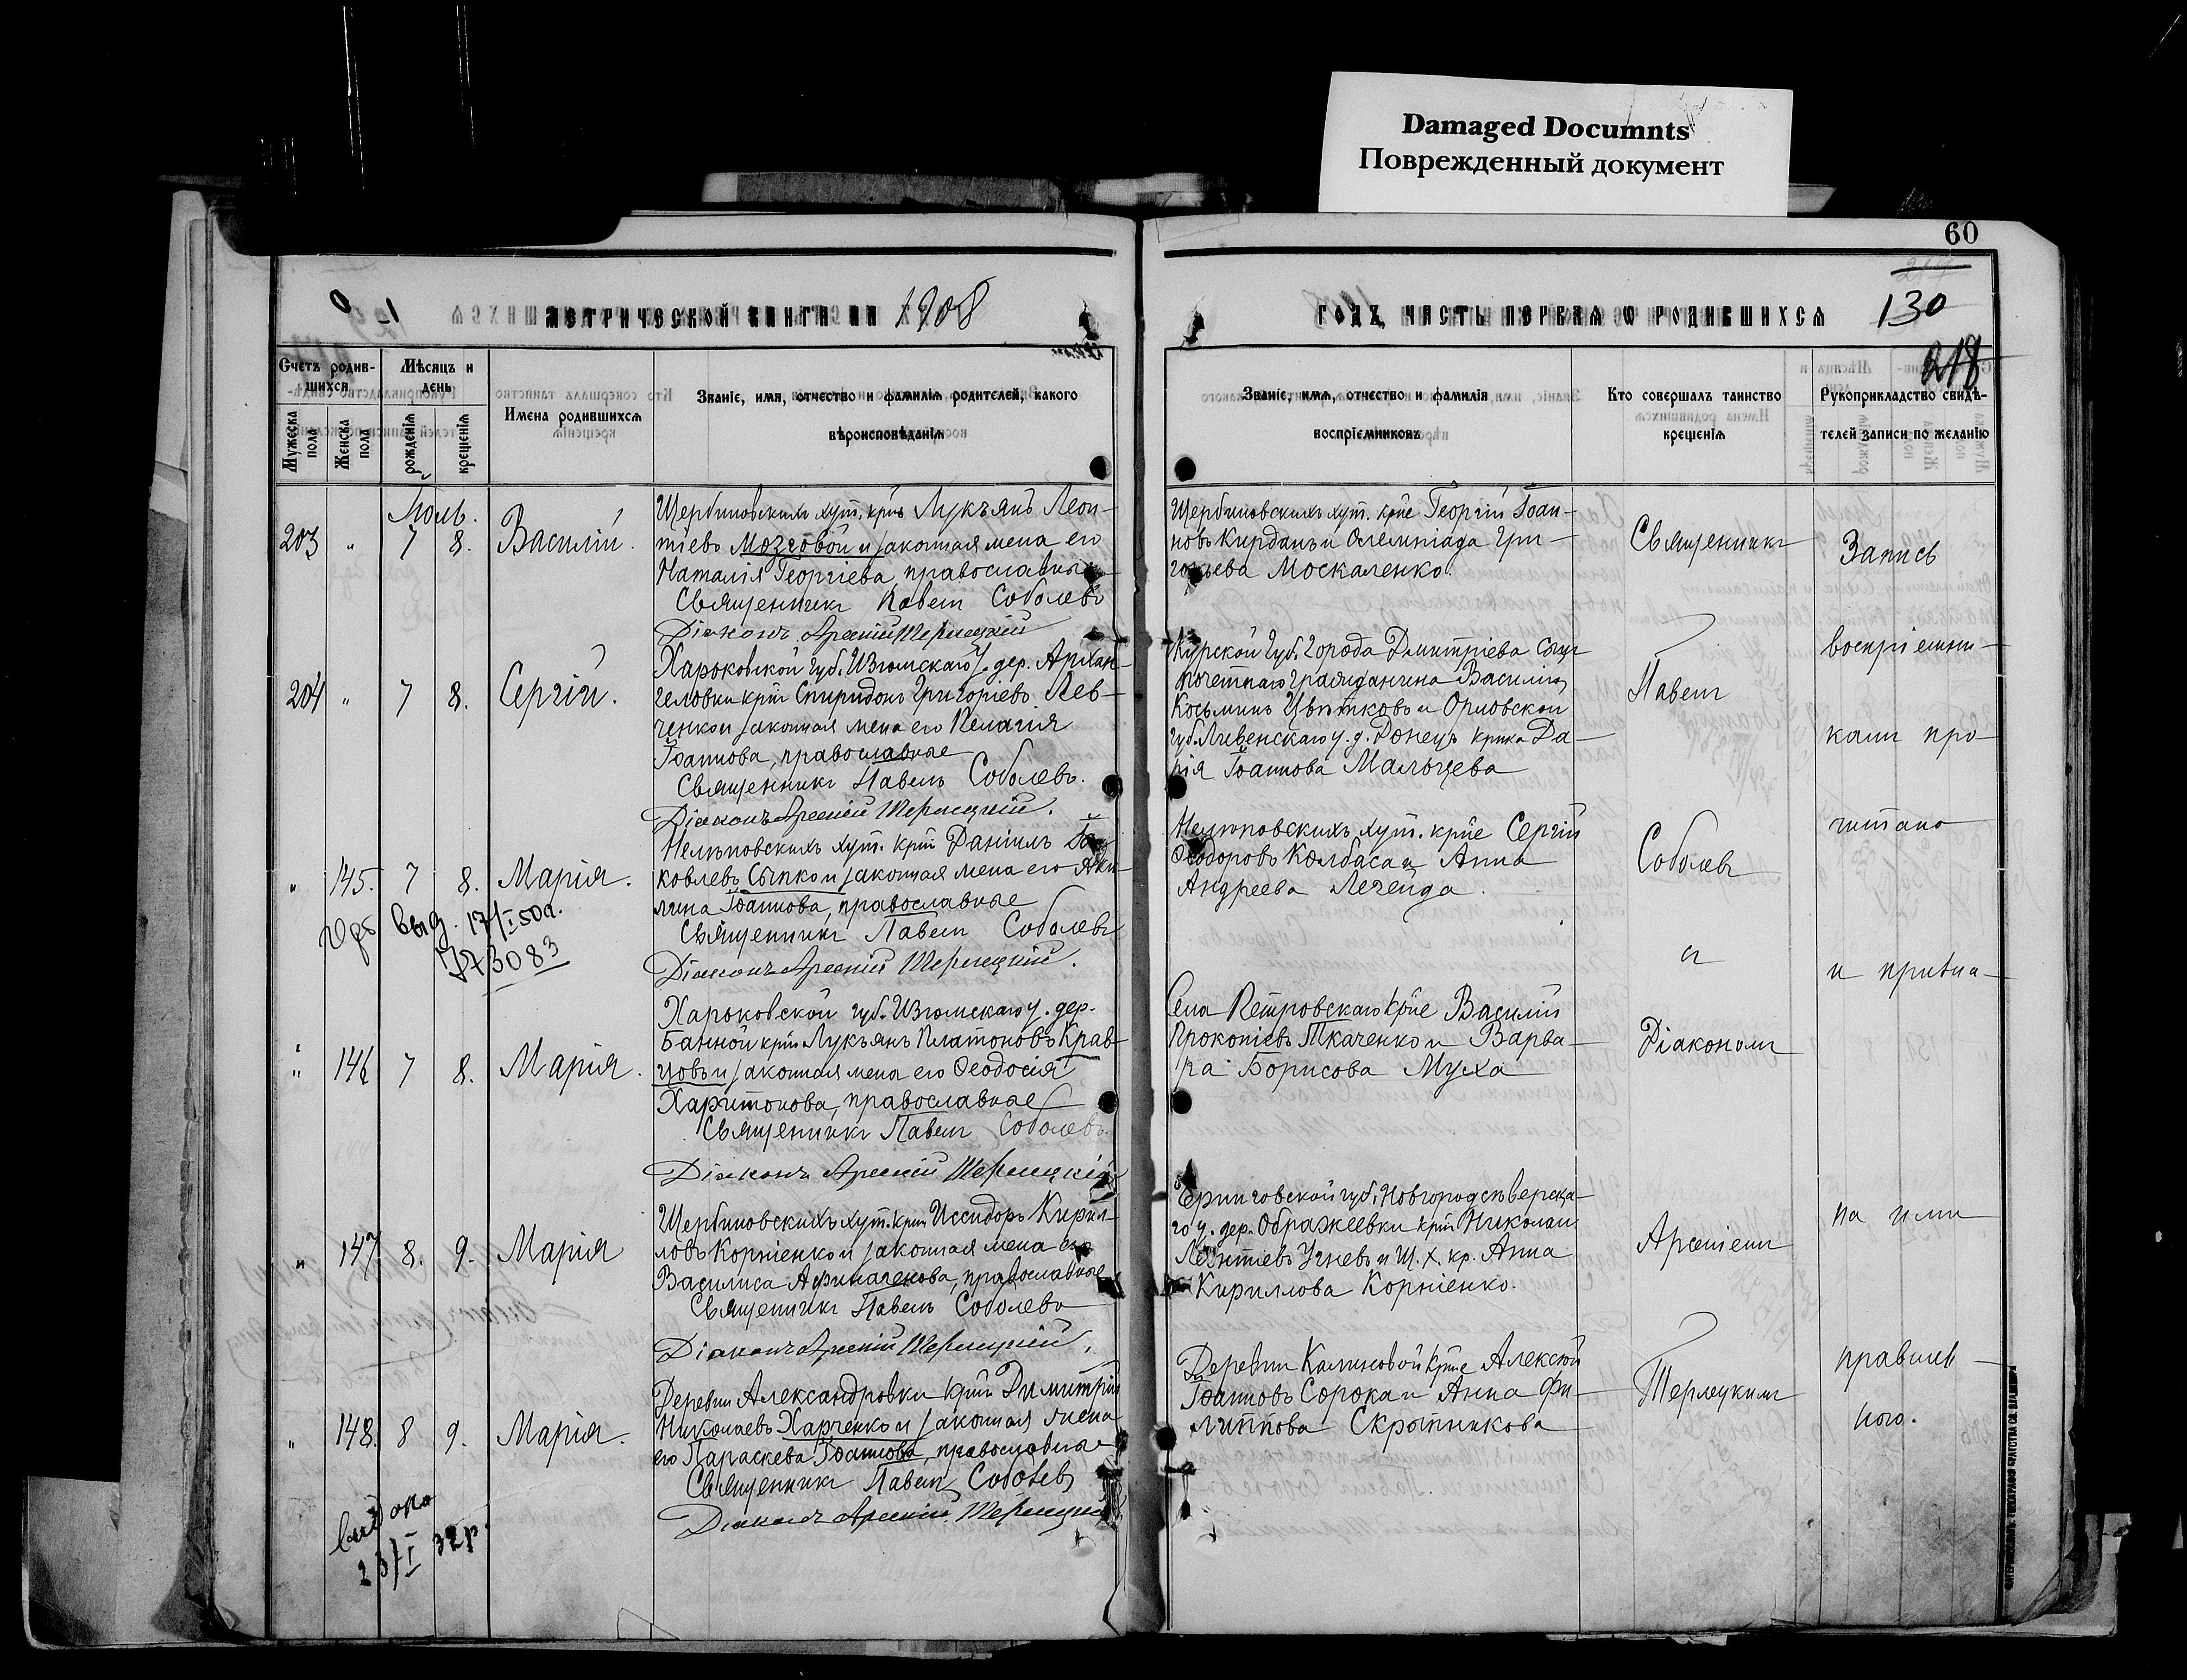 Damaged Documnts
Поврежденный документ
60
130
218
МЕТРИЧЕСКОЙ КНИГИ НА 1908
ГОДЪ, ЧАСТЬ ПЕРВАЯ Ѡ РОДИВШИХСЯ
Счетъ родив-
шихся
Мужеска пола
Женска пола
Мѣсяцъ и
день
рожденія
крещенія
Имена родившихся
Званіе, имя, отчество и фамилія родителей, какого
вѣроисповѣданія
Званіе, имя, отчество и фамилія
воспріемниковъ
Кто совершалъ таинство
крещенія
Рукоприкладство свидѣ-
телей записи по желанію
203 " 7 8. Василій.
Щербиновскихъ хут. крнъ Лукъянъ Леон-
тіевъ Мозговой и законная жена его
Наталія Георгіева, православные
Священникъ Павелъ Соболевъ
Діаконъ Арсеній Терлецкій
Щербиновскихъ хут. крне Георгій Іоан-
новъ Кирданъ и Олимпіада Гри-
горьева Москаленко.
204 " 7 8. Сергій.
Харьковской губ. Изюмскаго у. дер. Архан-
геловки крнъ Спиридонъ Григоріевъ Лев-
ченко и законная жена его Пелагія
Іоаннова, православные
Священникъ Павелъ Соболевъ.
Діаконъ Арсеній Терлецкій.
Курской губ. города Дмитріева сынъ
почетнаго гражданина Василій
Косьминъ Цвѣтковъ и Орловской
губ. Ливенскаго у. д. Донецъ крнка Да-
рія Іоаннова Мальцева
" 145. 7 8. Марія.
выд. 17/I 50г.
Нелѣповскихъ хут. крнъ Даніилъ Іа-
ковлевъ Сыпко и законная жена его Аки-
лина Іоаннова, православные
Священникъ Павелъ Соболевъ
Діаконъ Арсеній Терлецкій.
Нелѣповскихъ хут. крне Сергій
Ѳеодоровъ Колбаса и Анна
Андреева Легейда.
" 146 7 8. Марія.
Харьковской губ. Изюмскаго у. дер.
Банной крнъ Лукъянъ Платоновъ Крав-
цовъ и законная жена его Ѳеодосія
Харитонова, православные
Священникъ Павелъ Соболевъ.
Діаконъ Арсеній Терлецкій
Села Петровскаго крне Василій
Прокопіевъ Ткаченко и Варва-
ра Борисова Муха
" 147 8. 9. Марія
Щербиновскихъ хут. крнъ Исидоръ Кирил-
ловъ Корніенко и законная жена его
Василиса православные
Священникъ Павелъ Соболевъ
Діаконъ Арсеній Терлецкій.
Черниговской губ. Новгородсѣверска-
го у. дер. Ображеевки крнъ Николай
Леонтіевъ и Щ. Х. кр. Анна
Кириллова Корніенко.
" 148. 8 9. Марія.
23/I 32г.
Деревни Александровки крнъ Димитрій
Николаевъ Харченко и законная жена
его Параскева Іоаннова, православные
Священникъ Павелъ Соболевъ
Діаконъ Арсеній Терлецкій
Деревни Калиновой крне Алексѣй
Іоанновъ Сорока и Анна Фи-
липпова Скрыпникова
Священникъ
Павелъ
Соболевъ
съ
Діакономъ
Арсеніемъ
Терлецкимъ
Запись
воспріемни-
ками про-
читана
и призна-
на ими
правиль-
ною.